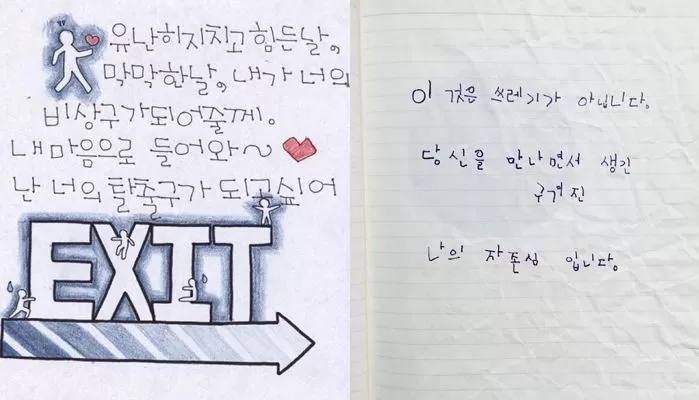 유난히지치고 힘든날,
막막한날, 내가 너의
비상구가되어줄께.
내마음으로 들어와~
난 너의 탈출구가 되고싶어
EXIT
이 것은 쓰레기가 아닙니다.
당신을 만나면서 생긴
구겨진
나의 자존심 입니다.